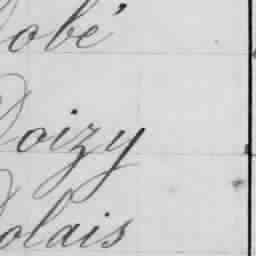 Dobé
Doizy
Dolais